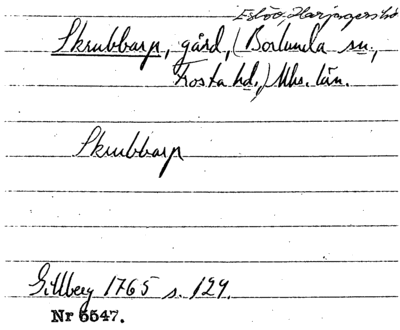 Eslöv, Harjagers hd
Skrubbarp, gård, (Borlunda sn,
Frosta hd.,) Mhs. län.
Skrubbarp
Gillberg 1765 s. 129.
Nr 6547.